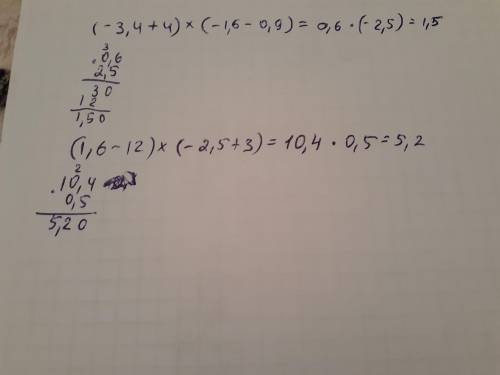 (-3,4+4)×(-1,6-0,9)=0,6·(-2,5)=1,5
3
.0,6
2,5
30
12
1,50
(1,6-12)×(-2,5+3)=10,4·0,5=5,2
2
.10,4
0,5
5,20